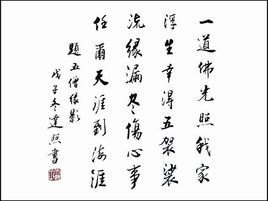 一道佛光照我家
浮生幸得五袈裟
流緣漏盡傷心事
任爾天涯到海涯
題五僧緣影
戊子冬達照書